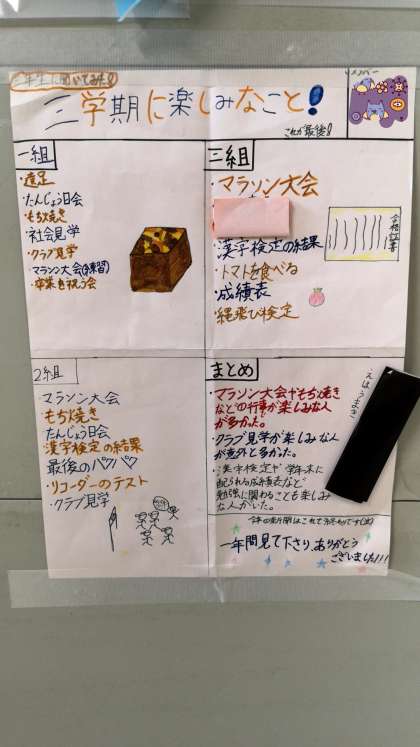 三年生に聞いてみた!!
三学期に楽しみなこと!
これが最後!
メンバー
一組
・遠足
・たんじょう日会
・もち焼き
・社会見学
・クラブ見学
・マラソン大会(練習)
・卒業を祝う会
三組
・マラソン大会
・漢字検定の結果
・トマトを食べる
・成績表
・縄飛び検定
合格証書
2組
・マラソン大会
・もち焼き
・たんじょう日会
・漢字検定の結果
・最後のパパ
・リコーダーのテスト
・クラブ見学
まとめ
・マラソン大会やもち焼き
などの行事が楽しみな人
が多かった。
・クラブ見学が楽しみな人
が意外と多かった。
・漢字検定や学年末に
配られる成績表など
勉強に関わることも楽しみ
な人がいた。
えほうまき
一年間見て下さり、ありがとう
ございました!!!